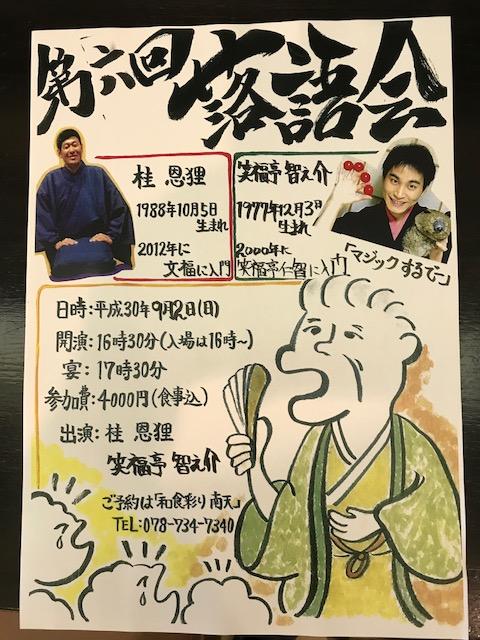 第六回 落語会
桂 恩狸
1988年10月5日
生まれ
2012年に
文福に入門
笑福亭 智之介
1977年12月3日
生まれ
2000年に
笑福亭仁智に入門
「マジックするでー」
日時:平成30年9月2日(日)
開演:16時30分(入場は16時~)
宴:17時30分
参加費:4000円(食事込)
出演:桂 恩狸
笑福亭 智之介
ご予約は「和食彩り 南天」
TEL:078-734-7340